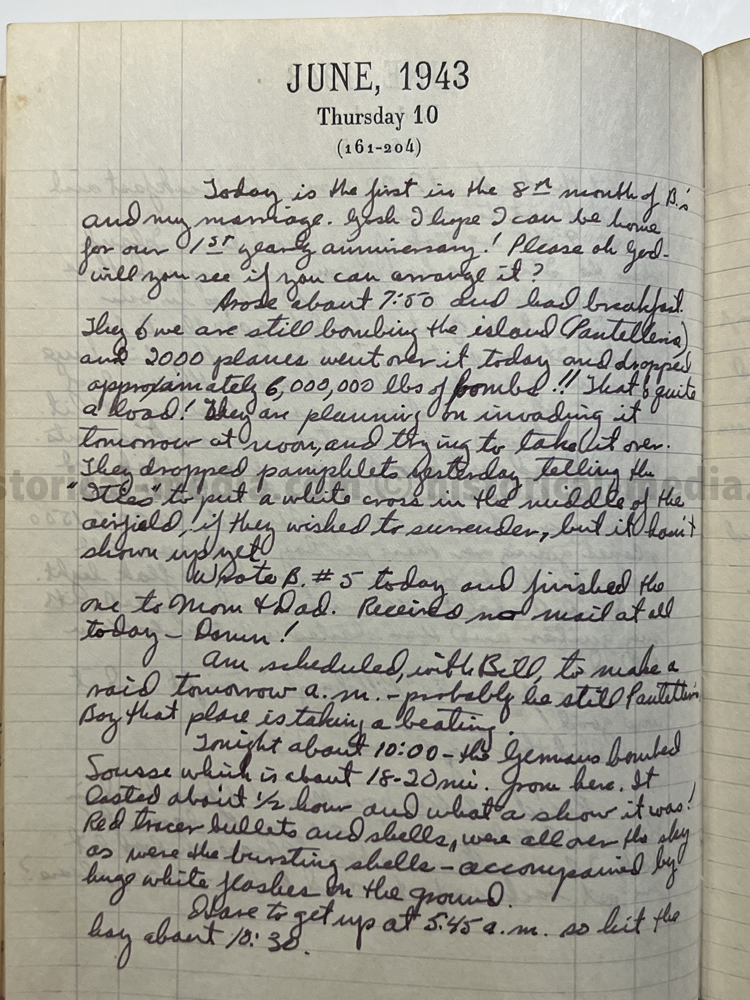 JUNE, 1943
Thursday 10
(161-204)
Today is the first in the 8th month of B.'s
and my marriage. Gosh I hope I can be home
for our 1st yearly anniversary! Please oh God-
will you see if you can arrange it?
Arose about 7:50 and had breakfast.
They & we are still bombing the island (Pantelleria)
and 2000 planes went over it today and dropped
approximately 6,000,000 lbs of bombs!! That's quite
a load! They are planning on invading it
tomorrow at noon, and trying to take it over.
They dropped pamphlets yesterday telling the
"Ities" to put a white cross in the middle of the
airfield, if they wished to surrender, but it hasn't
shown up yet.
Wrote B. #5 today and finished the
one to Mom & Dad. Received no mail at all
today - Damn!
Am scheduled, with Bill, to make a
raid tomorrow a.m. - probably be still Pantelleria
Boy that place is taking a beating.
Tonight about 10:00 - the Germans bombed
Sousse which is about 18-20 mi. from here. It
lasted about 1/2 hour and what a show it was!
Red tracer bullets and shells, were all over the sky
as were the bursting shells - accompanied by
huge white flashes on the ground.
Have to get up at 5:45 a.m. so hit the
hay about 10:30.